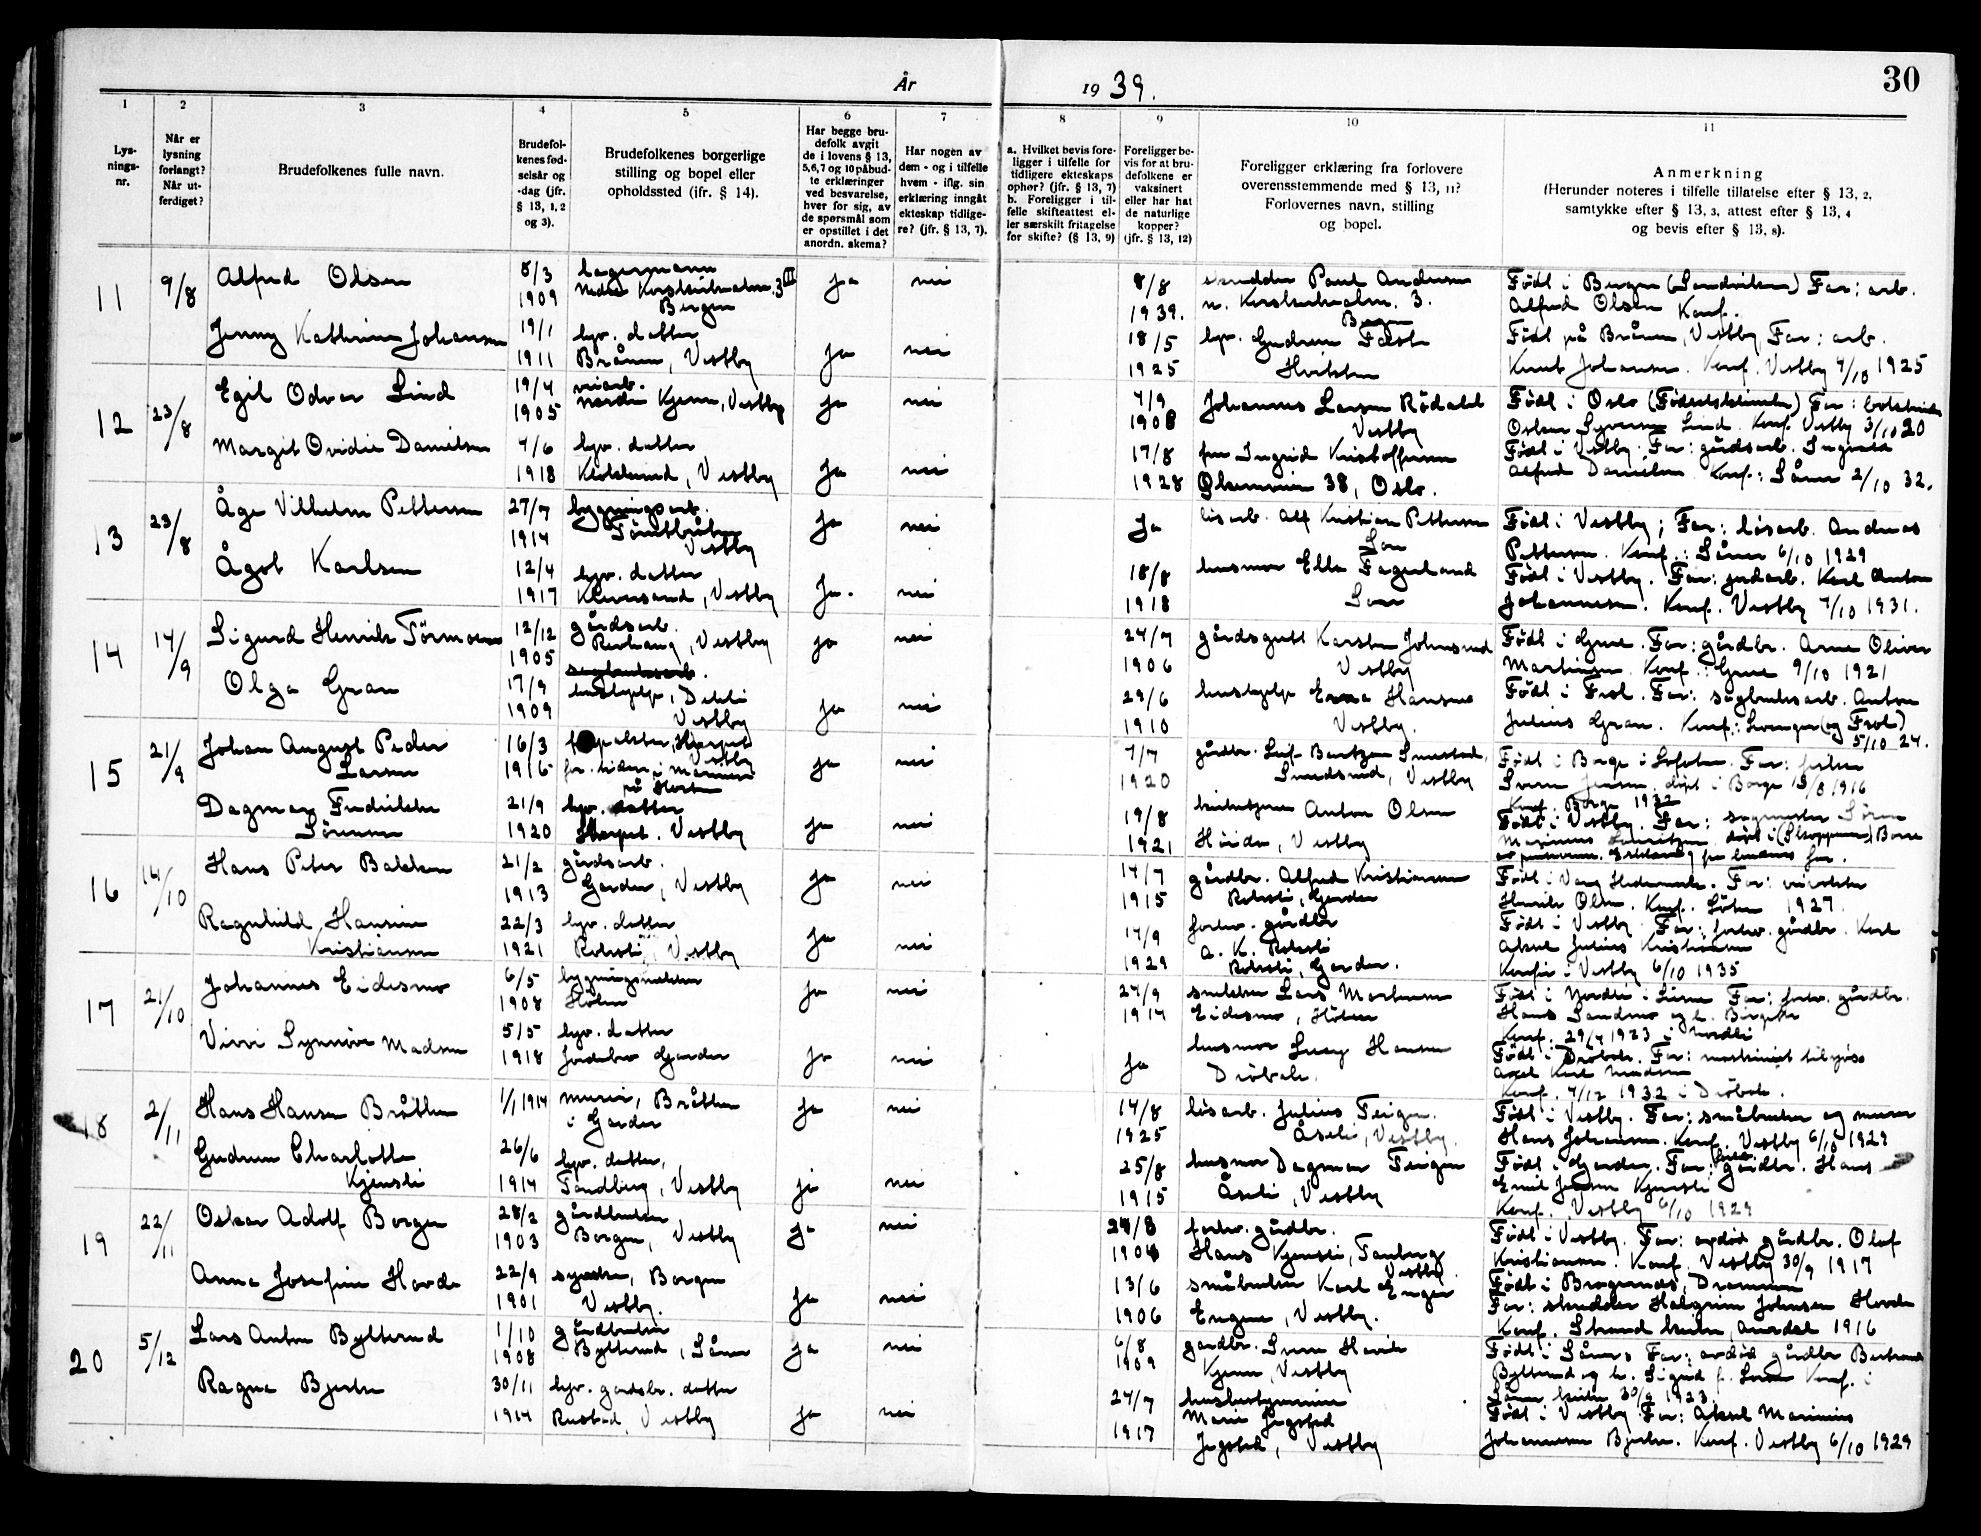 År 1939.
30
1
2
3
4
5
6
7
8
9
10
11
Lys-
nings-
nr.
Når er
lysning
forlangt?
Når ut-
ferdiget?
Brudefolkenes fulle navn.
Brudefol-
kenes fød-
selsår og
-dag (jfr.
§ 13, 1, 2
og 3).
Brudefolkenes borgerlige
stilling og bopel eller
opholdssted (ifr. § 14).
Har begge bru-
defolk avgit
de i lovens § 13,
5,6,7 og 10 påbud-
te erklæringer
ved besvarelse,
hver for sig, av
de spørsmål som
er opstillet i det
anordn. skema?
Har nogen av
dem - og i tilfelle
hvem - iflg. sin
erklæring inngåt
ekteskap tidlige-
re? (jfr. § 13, 7).
a. Hvilket bevis fore-
ligger i tilfelle for
tidligere ekteskaps
ophør? (jfr. § 13, 7)
b. Foreligger i til-
felle skifteattest el-
ler særskilt fritagelse
for skifte? (§ 13, 9)
Foreligger be-
vis for at bru-
defolkene er
vaksinert
eller har hat
de naturlige
kopper?
(jfr. § 13, 12)
Foreligger erklæring fra forlovere
overensstemmende med § 13, 11?
Forlovernes navn, stilling
og bopel.
Anmerkning
(Herunder noteres i tilfelle tillatelse efter § 13, 2,
samtykke efter § 13, 3, attest efter § 13, 4
og bevis efter § 13, 8).
11
9/8
Alfred Olsen
8/3
1909
lagermann
Nedre Korskirkealm. 3 III
Bergen
ja
nei
8/8
1939.
skredder Paul Andersen
n. Korskirkealm. 3.
Bergen
Född i Bergen (Sandviken) Far: arb.
Alfred Olsen Konf.
Jenny Kathrine Johansen
19/1
1911
hjv. datter
Brånen, Vestby
ja
nei
18/5
1925
hjv. Gudrun
Hvitsten
Född på Brånen, Vestby Far: arb.
Knut Johansen. Konf. Vestby 4/10 1925
12
23/8
Egil Odvar Lind
19/4
1905
Nordre Kjenn, Vestby
ja
nei
Johannes Larsen Rødalel
Vestby
Född i Oslo
Oskar Syversen Lind. Konf. Vestby 3/10 20
Margit Ovidie Danielsen
7/6
1918
hjv. datter
Vestby
ja
nei
17/8
1928
fru Ingrid Kristoffersen
38, Oslo.
Född i Vestby. Far: gårdsarb. Ingvald
Alfred Danielsen Konf.: Såner 2/10 32.
13
23/8
Åge Vilhelm Pettersen
27/7
1914
bygningsarb.
Vestby
ja
nei
ja
løsarb. Alf Kristian Pettersen
Son
Född i Vestby; Far: løsarb. Andreas
Pettersen. Konf.: Såner 6/10 1929
Ågot Karlsen
12/4
1917
hjv. datter
Vestby
Ja.
nei
18/8
1918
husmor Ella Fagerland
Son
Född i Vestby. Far: jordarb. Karl Anton
Johannesen. Konf. Vestby 4/10 1931.
14
14/9
Sigurd Henrik Törmoen
12/12
1905
gårdsarb.
Vestby
ja
nei
24/7
1906
gårdsgutt Karsten Johnsrud
Vestby
Född i Grue. Far: gårdbr. Arne Oliver
Martinsen. Konf.: Grue 9/10 1921
Olga Gran
17/9
1909
hushjelp, Deli
Vestby
ja
nei
29/6
1910
hushjelp Erna Hansen
Vestby.
Född i Frol. Far: sagbruksarb. Anton
Julius Gran. Konf: Levanger (og Frol)
5/10 24.
15
21/9
Johan August Peder
Larsen
16/3
1916
Vestby
ja
nei
7/7
1920
gårdbr. Leif Berntzen Smestad,
Vestby
Född i Borge i Lofoten. Far: fisker
Konf. Borge 1932
Dagmar Fredrikke
Sörensen
21/9
1920
hjv. datter
Vestby
ja
nei
19/8
1921
Anton Olsen
Vestby
Född i Vestby. Far: sagmester Sören
16
14/10
Hans Peter Bakken
21/2
1913
gårdsarb.
Garder, Vestby
ja
nei
14/7
1915
gårdbr. Alfred Kristiansen
Garder
Född i Vang Hedemark. Far:
Henrik Olsen. Konf. Löten 1927.
Ragnhild Hansine
Kristiansen
22/3
1921
hjv. datter
Vestby
ja
nei
14/9
1929
forhv. gårdbr
A. K.
Garder.
Född i Vestby Far: forhv. gårdbr. Karl
Aksel Julius Kristiansen
Konf. i Vestby 6/10 1935
17
21/10
Johannes Eidesmo
6/5
1908
bygningssnekker
Hölen
ja
nei
24/9
1914
snekker Lars Mortensen
Eidesmo, Hölen
Född i Nordli i Lierne Far: forhv. gårdbr.
Hans Sandmo og h. Birgitte
Konf. 29/4 1923 i Nordli
Vivi Synnöve Madsen
5/5
1918
hjv. datter
Garder
ja
nei
ja
husmor Lucy Hansen
Dröbak.
Född i Dröbak. Far: maskinist tilsjøs
Axel Karl Madsen
Konf. 4/12 1932 i Dröbak.
18
2/11
Hans Hansen Bråtten
1/1 1914
murer, Bråtten
i Garder
ja
nei
14/8
1925
løsarb. Julius Teigen.
Åseli, Vestby.
Född i Vestby. Far: småbruker og murer
Hans Johansen. Konf. Vestby 6/10 1929
Gudrun Charlotte
Kjensli
26/6
1914
hjv. datter,
Tandberg, Vestby
ja
nei
25/8
1915
husmor Dagmar Teigen
Åseli, Vestby
Född i Garder. Far: gårdbr. Hans
Emil Jensen Kjensli
Konf. Vestby 6/10 1929
19
22/11
Oskar Adolf Borgen
28/2
1903
gårdbruker
Borgen, Vestby
ja
nei
24/8
1904
forhv. gårdbr.
Hans Kjensli, Tanberg
Vestby.
Född i Vestby. Far: avdöd gårdbr. Olaf
Kristiansen. Konf. Vestby 30/9 1917
Anna Josefine Hovde
22/9
1901
syerske, Borgen
Vestby.
ja
nei
13/6
1906
småbruker Karl Enger
Engene, Vestby.
Född i Bragernes, Drammen
Far: skredder Halgrim Johnsen Hovde
Konf. Strand kirke, Aurdal 1916
20
5/12
Lars Anton Bytterud
1/10
1908
gårdbruker
Bytterud, Såner
ja
nei
6/8
1909
gårdbr. Sven Havik
Kjenn, Vestby
Född i Såner. Far: avdöd gårdbr Bertrand
Bytterud og h. Sigrid f. Larsen Konf. i
Såner kirke 30/9 1923
Ragna Bjerke
30/11
1914
hjv. gårdsbr. datter
Rustad, Vestby
ja
nei
24/7
1917
husbestyrerinne
Marie Jegstad
Jegstad, Vestby
Född i Vestby Far: Aksel Marinius
Johannesen Bjerke. Konf. Vestby 6/10 1929